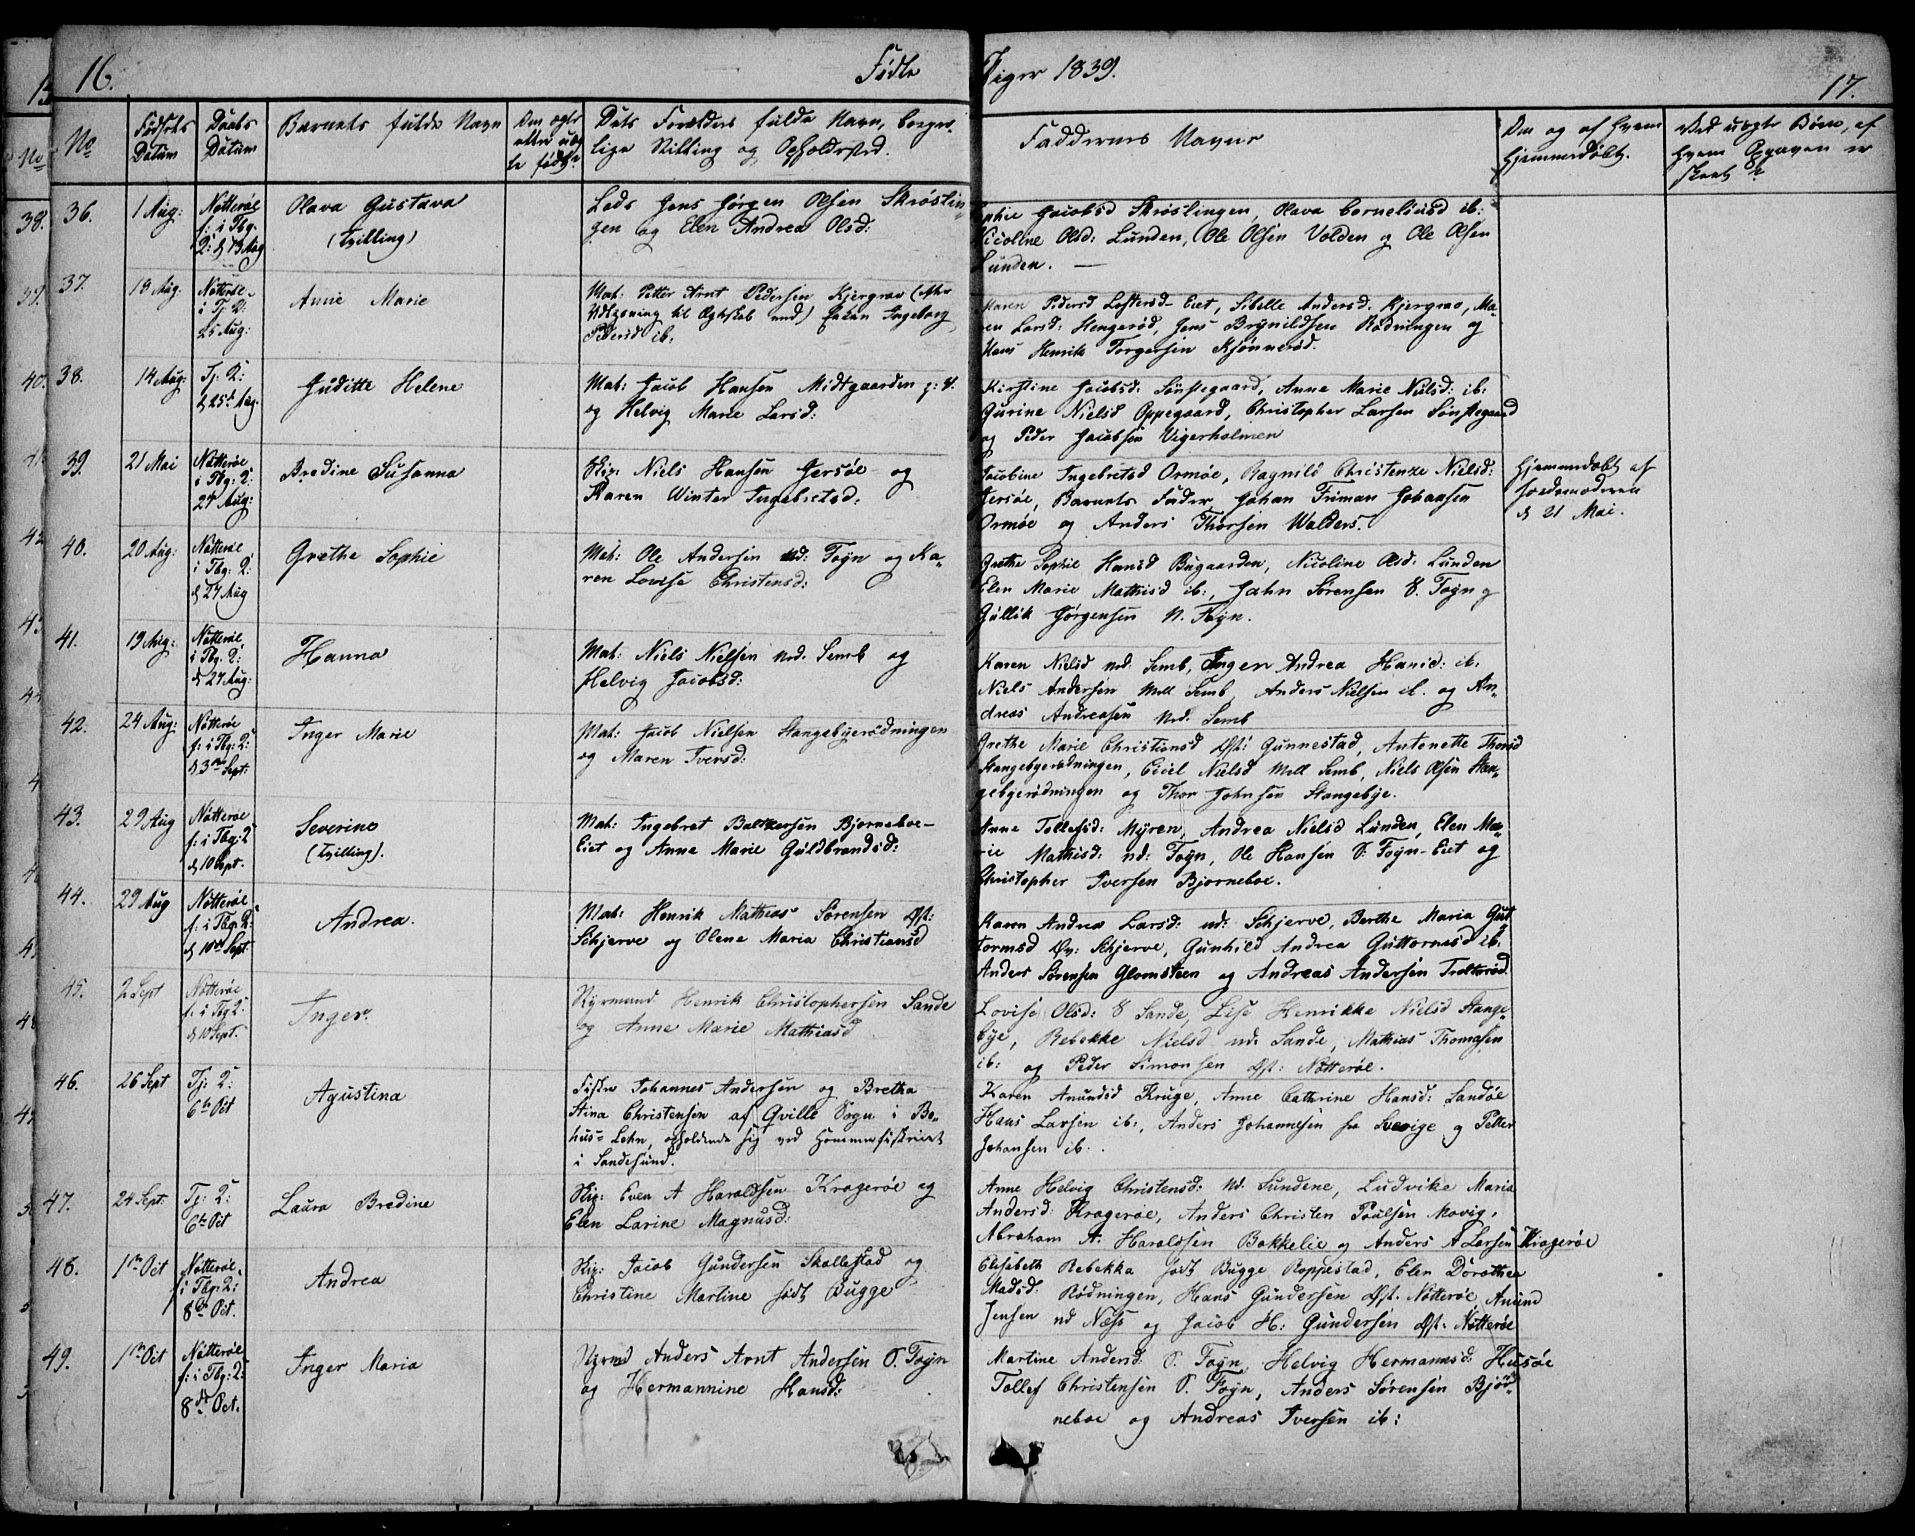 16.
Fødte
Piger 1839.
17.
No
Fødsels Datum
Daabs Datum
Barnets fulde Navn
Om ægte eller uægte født
Dets Forældres fulde Navn, borgerlige Stilling og Opholdssted.
Faddernes Navne
Om og af hvem hjemmedøbt.
Ved uægte Børn, af hvem Opgaven er skeet
36.
1 Aug:
Nøtterøe
f: i Tbg:
2: d 13 Aug
Olava Gustava
(Tvilling)
Lods Jens Jørgen Olsen Skrøslin-
gen og Elen Andrea Olsd:
Sophie Jacobsd Skrøslingen, Olava Corneliusd ib:
Nicoline Olsd: Lunden, Ole Olsen Volden og Ole Olsen
Lunden.
37.
13 Aug.
Nøtterøe
i Tj: 2:
25 Aug:
Anne Marie
Mat: Petter Arnt Pedersen Kjergrav
Pedersd ib.
Karen Pedersd Eiet, Sibille Andersd: Kjergrav, Ma-
ren Larsd: Hengerød, Jens Brynildsen Rødningen og
Hans Henrik Torgersen Kjønnerød.
38.
14 Aug:
Tj: 2:
d 25 Aug.
Juditte Helene
Mat: Jacob Hansen Midtgaarden
og Helvig Marie Larsd:
Kirstine Jacobsd: Sønstegaard, Anna Marie Nielsd: ib:
Gurine Nielsd Oppegaard, Christopher Larsen Sønstegaard
og Peder Jacobsen Vigerholmen
39.
21 Mai
Nøtterøe
i Tbg: 2:
27 Aug:
Bredine Susanna
Skip: Niels Hansen Jersøe og
Karen Winter Ingebretsd:
Jacobine Ingebretsd Ormøe, Ragnild Christenze Nielsd:
Jersøe, Barnets Fader, Johan Friman Johansen
Ormøe og Anders Thorsen Walders.
hjemmedøbt af
Jordemoderen
d 21 Mai.
40.
20 Aug:
Nøtterøe
i Tbg: 2:
d 27 Aug
Grethe Sophie
Mat: Ole Andersen nd: Føyn og Ka-
ren Lovise Christensd:
Grethe Sophie Hansd Bugaarden, Nicoline Olsd: Lunden
Elen Marie Mathisd ib:, John Sørensen S. Føyn og
Gullik Jørgensen N. Føyn.
41.
19 Aug:
Nøtterøe
i Tbg: 2:
d 27 Aug:
Hanna
Mat: Niels Nielsen nd. Semb og
Helvig Jacobsd:
Karen Nielsd nd. Semb, Inger Andrea Hansd: ib:
Niels Andersen Mell Semb, Anders Nielsen ib. og An-
dreas Andreasen nd. Semb
42.
24 Aug:
Nøtterøe
f: i Tbg: 2:
d 3 Sept:
Inger Marie
Mat: Jacob Nielsen Stangebyerødningen
og Maren Iversd:
Grethe Marie Christiansd Øst: Gunnestad, Antonette Thorsd
Stangebyerødningen, Cicel Nielsd Mell Semb, Niels Olsen Stan-
gebyerødningen og Thor Johnsen Stangebye.
43.
29 Aug
Nøtterøe
f: i Tbg: 2
d 10 Sept.
Severine
(Tvilling).
Mat: Ingebret Baltzersen Bjørneboe-
Eiet og Anne Marie Guldbrandsd:
Anne Tollefsd: Myren, Andrea Nielsd Lunden, Elen Ma-
rie Mathisd: nd: Føyn, Ole Hansen S: Føyn-Eiet og
Christopher Iversen Bjørneboe.
44.
29 Aug
Nøtterøe
f: i Tbg: 2:
d 10 Sept.
Andrea.
Mat: Henrik Mathias Sørensen Øst:
Schjerve og Olena Maria Christiansd
Karen Andrea Larsd: nd: Schjerve, Berthe Maria Gut
tormsd Øv: Schjerve, Gunhild Andrea Guttormsd ib:
Anders Sørensen Glomsteen og Andreas Andersen Trolterød.
45.
2 Sept
Nøtterøe
f: i Tbg 2:
d 10 Sept.
Inger.
Styrmand Henrik Christophersen Sande
og Anne Marie Mathiasd
Lovise Olsd: S Sande, Lise Henrikke Nielsd Stange-
bye, Rebekke Nielsd nd: Sande, Mathias Thomasen
ib: og Peder Simonsen Øst: Nøtterøe.
46.
26 Sept
Tj: 2:
6te Oct
Agustina
Fisker Johannes Andersen og Bretha
Stina Christensen af Qville Sogn i Bo-
hus-Lehn, opholdende sig ved Hommerfiskeriet
i Sandesund.
Karen Anundsd Kruge, Anne Cathrine Hansd: Sandøe
Hans Larsen ib:, Anders Johannesen fra Sverige og Petter
Johansen ib.
47.
24 Sept.
Tj: 2:
6te Oct
Laura Bredine
Skip: Even A Haraldsen Kragerøe og
Elen Larine Magnusd:
Anne Helvig Christensd: nd. Sundene, Ludvike Maria
Andersd: Kragerøe, Anders Christen Poulsen Movig,
Abraham A. Haraldsen Bakkelie og Anders A Larsen Kragerøe
48.
1ste Oct
Nøtterøe
f: i Tbg: 2:
8de Oct.
Andrea
Skip: Jacob Gundersen Skallestad og
Christine Martine født Bugge
Elisabeth Rebekka født Bugge Roppestad, Elen Dorothea
Madsd: Rødningen, Hans Gundersen Øst. Nøtterøe, Anund
Jensen nd Næss og Jacob H: Gundersen Øst. Nøtterøe
49.
1ste Oct
Nøtterøe
f: i Tbg: 2:
8de Oct.
Inger Maria
Styrmd Anders Arnt Andersen S. Føyn
og Hermannine Hansd:
Martine Andersd S. Føyn, Helvig Hermannsd: Husøe
Tollef Christensen S. Føyn, Anders Sørensen Bjør-
neboe og Andreas Iversen ib: